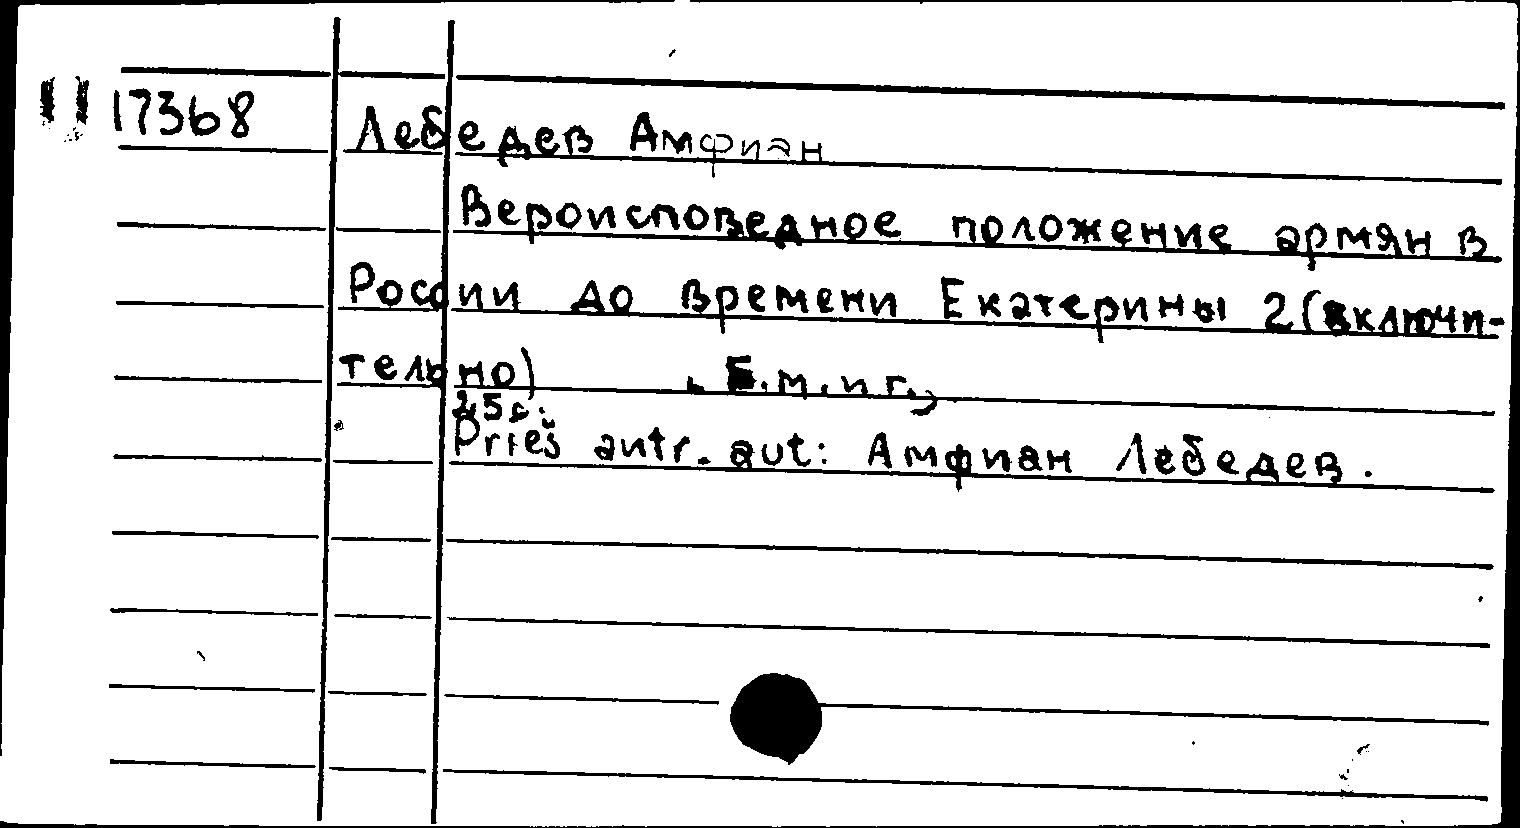 17368
Лебедев Амфиан
Вероисповедное положение армян в
России до времени Екатерины 2 (включи-
тельно) Б.м. и г.,
25 с.
Prieš antr. aut: Амфиан Лебедев.